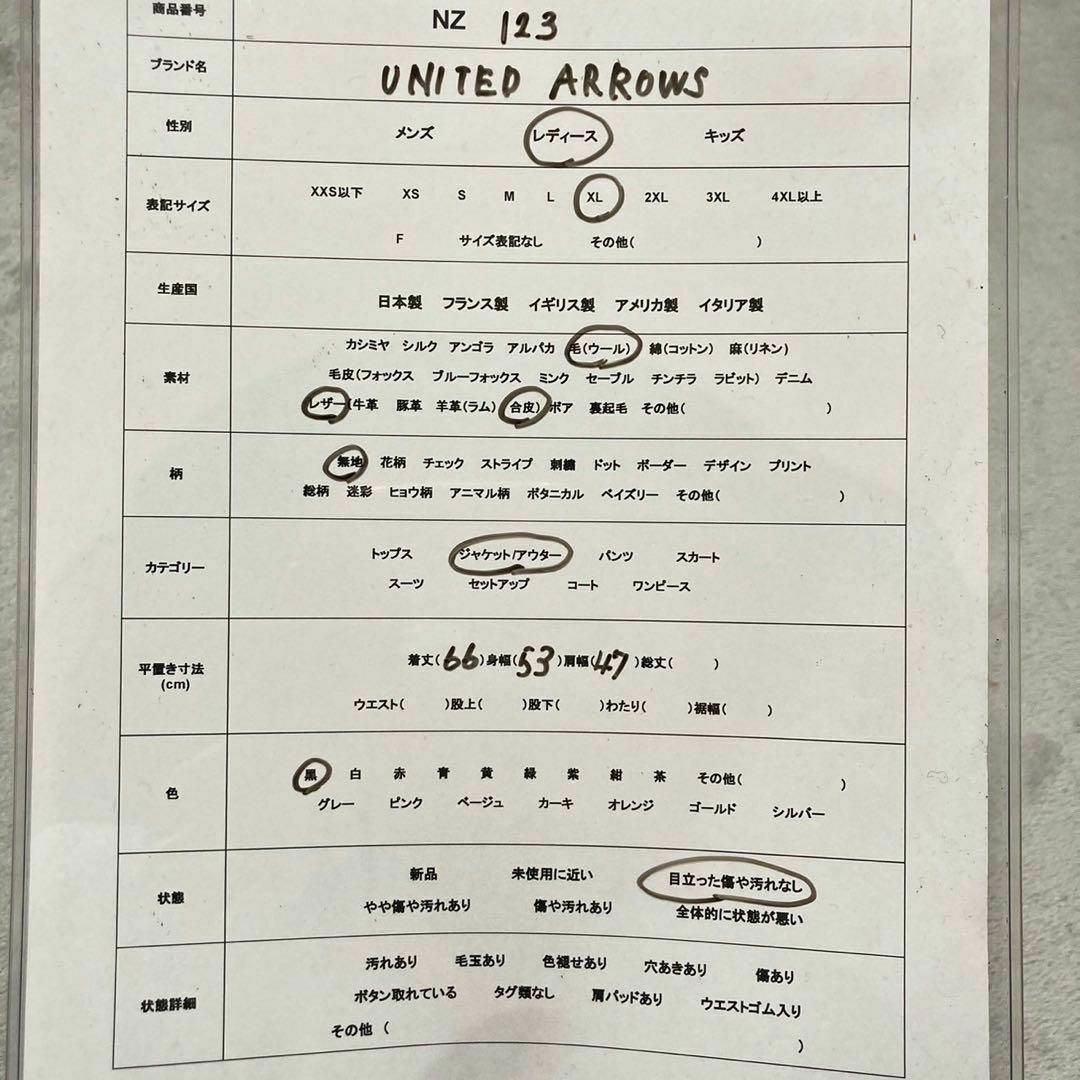 商品番号 NZ 123
ブランド名 UNITED ARROWS
性別 メンズ レディース キッズ
表記サイズ XXS以下 XS S M L XL 2XL 3XL 4XL以上
F サイズ表記なし その他( )
生産国 日本製 フランス製 イギリス製 アメリカ製 イタリア製
カシミヤ シルク アンゴラ アルパカ 毛(ウール) 綿(コットン) 麻(リネン)
素材 毛皮(フォックス ブルーフォックス ミンク セーブル チンチラ ラビット) デニム
レザー(牛革 豚革 羊革(ラム) 合皮) ボア 裏起毛 その他( )
柄 無地 花柄 チェック ストライプ 刺繍 ドット ボーダー デザイン プリント
総柄 迷彩 ヒョウ柄 アニマル柄 ボタニカル ペイズリー その他( )
カテゴリー トップス ジャケット/アウター パンツ スカート
スーツ セットアップ コート ワンピース
平置き寸法 着丈(66)身幅(53)肩幅(47)総丈( )
(cm) ウエスト( )股上( )股下( )わたり( )裾幅( )
色 黒 白 赤 青 黄 緑 紫 紺 茶 その他( )
グレー ピンク ベージュ カーキ オレンジ ゴールド シルバー
状態 新品 未使用に近い 目立った傷や汚れなし
やや傷や汚れあり 傷や汚れあり 全体的に状態が悪い
汚れあり 毛玉あり 色褪せあり 穴あきあり 傷あり
状態詳細 ボタン取れている タグ類なし 肩パッドあり ウエストゴム入り
その他 ( )